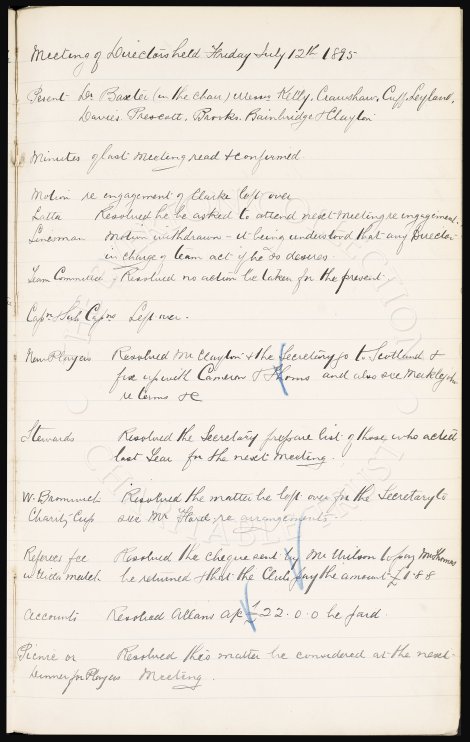 Meeting of Directors held Friday July 12th 1895
Present Dr Baxter (in the chair) Messrs Kelly, Crawshaw, Cuff, Leyland,
Davies. Prescott, Brooks, Bainbridge & Clayton
Minutes of last Meeting read & confirmed
Motion re engagement of Clarke left over
Latta Resolved he be asked to attend next Meeting re engagement.
Linesman Motion withdrawn - it being understood that any Director
in charge of team act if he so desires.
Team Committee Resolved no action be taken for the present.
Capn & Sub Capns Left over.
New Players Resolved Mr Clayton & the Secretary go to Scotland &
fix up with Cameron & Thoms and also see
re terms &c
Stewards Resolved the Secretary prepare list of those who acted
last Year for the next Meeting.
W. Bromwich Resolved the matter be left over for the Secretary to
Charity Cup see Mr Ford re arrangements
Referees fee Resolved the cheque sent by Mr Wilson to pay Mr Thomas
match. be returned & that the Club pay the amount £1.8.8
Accounts Resolved Allans a/c £22.0.0 be paid.
Picnic or Resolved this matter be considered at the next
Dinner for Players Meeting.